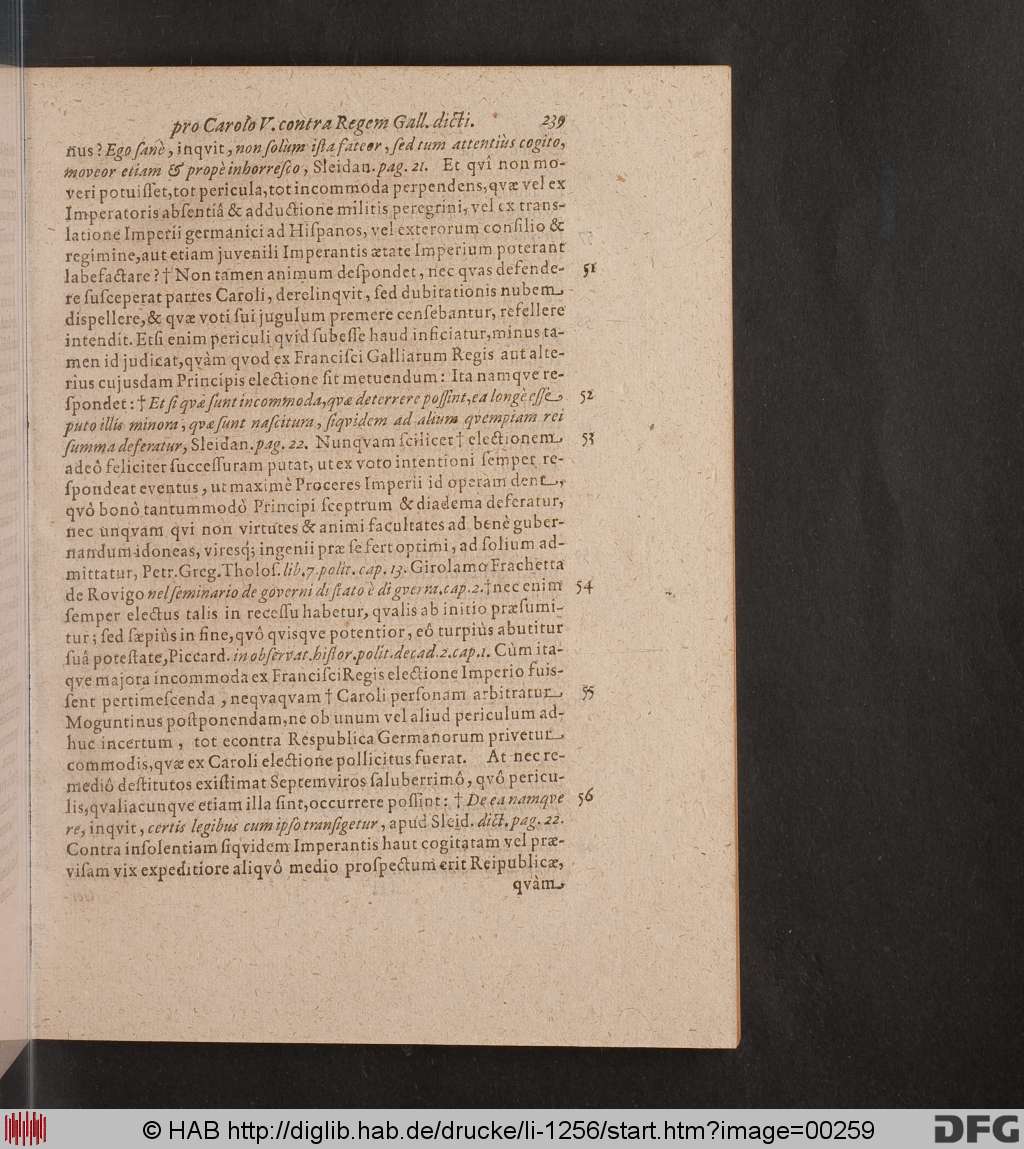 pro Carolo V. contra Regem Gall. dicti. 239
nus? Ego ſanè, inqvit, non ſolùm iſta fateor, ſed tum attentiùs cogito,
moveor etiam & propè inhorreſco, Sleidan. pag. 21. Et qvi non mo-
veri potuiſſet, tot pericula, tot incommoda perpendens, qvæ vel ex
Imperatoris abſentiâ & adductione militis peregrini, vel ex trans-
latione Imperii germanici ad Hiſpanos, vel exterorum conſilio &
regimine, aut etiam juvenili Imperantis ætate Imperium poterant
labefactare? † Non tamen animum deſpondet, nec qvas defende- 51
re ſuſceperat partes Caroli, derelinqvit, ſed dubitationis nubem
diſpellere, & qvæ voti ſui jugulum premere cenſebantur, refellere
intendit. Etſi enim periculi qvid ſubeſſe haud inficiatur, minus ta-
men id judicat, qvàm qvod ex Franciſci Galliarum Regis aut alte-
rius cujusdam Principis electione ſit metuendum: Ita namqve re-
ſpondet: † Et ſi qvæ ſunt incommoda, qvæ deterrere poſſint, ea longè eſſe 52
puto illis minora, qvæ ſunt naſcitura, ſiqvidem ad alium qvempiam rei
ſumma deferatur, Sleidan. pag. 22. Nunqvam ſcilicet † electionem 53
adeò feliciter ſucceſſuram putat, ut ex voto intentioni ſemper re-
ſpondeat eventus, ut maximè Proceres Imperii id operam dent,
qvô bonò tantummodò Principi ſceptrum & diadema deferatur,
nec unqvam qvi non virtutes & animi facultates ad benè guber-
nandum idoneas, viresq; ingenii præ ſe fert optimi, ad ſolium ad-
mittatur, Petr. Greg. Tholoſ. lib. 7. polit. cap. 13. Girolamo Frachetta
de Rovigo nel ſeminario de governi di ſtato è di gverra. cap. 2. † nec enim 54
ſemper electus talis in receſſu habetur, qvalis ab initio præſumi-
tur; ſed ſæpiùs in fine, qvô qvisqve potentior, eô turpiùs abutitur
ſuâ poteſtate, Piccard. in obſervat. hiſtor. polit. decad. 2. cap. 1. Cùm ita-
qve majora incommoda ex Franciſci Regis electione Imperio fuiſ-
ſent pertimeſcenda, neqvaqvam † Caroli perſonam arbitratur 55
Moguntinus poſtponendam, ne ob unum vel aliud periculum ad-
huc incertum, tot econtra Respublica Germanorum privetur
commodis, qvæ ex Caroli electione pollicitus fuerat. At nec re-
mediô deſtitutos exiſtimat Septemviros ſaluberrimô, qvô pericu-
lis, qvaliacunqve etiam illa ſint, occurrere poſſint: † De ea namqve 56
re, inqvit, certis legibus cum ipſo tranſigetur, apud Sleid. dict. pag. 22.
Contra inſolentiam ſiqvidem Imperantis haut cogitatam vel præ-
viſam vix expeditiore aliqvô medio proſpectum erit Reipublicæ,
qvàm
© HAB http://diglib.hab.de/drucke/li-1256/start.htm?image=00259
DFG